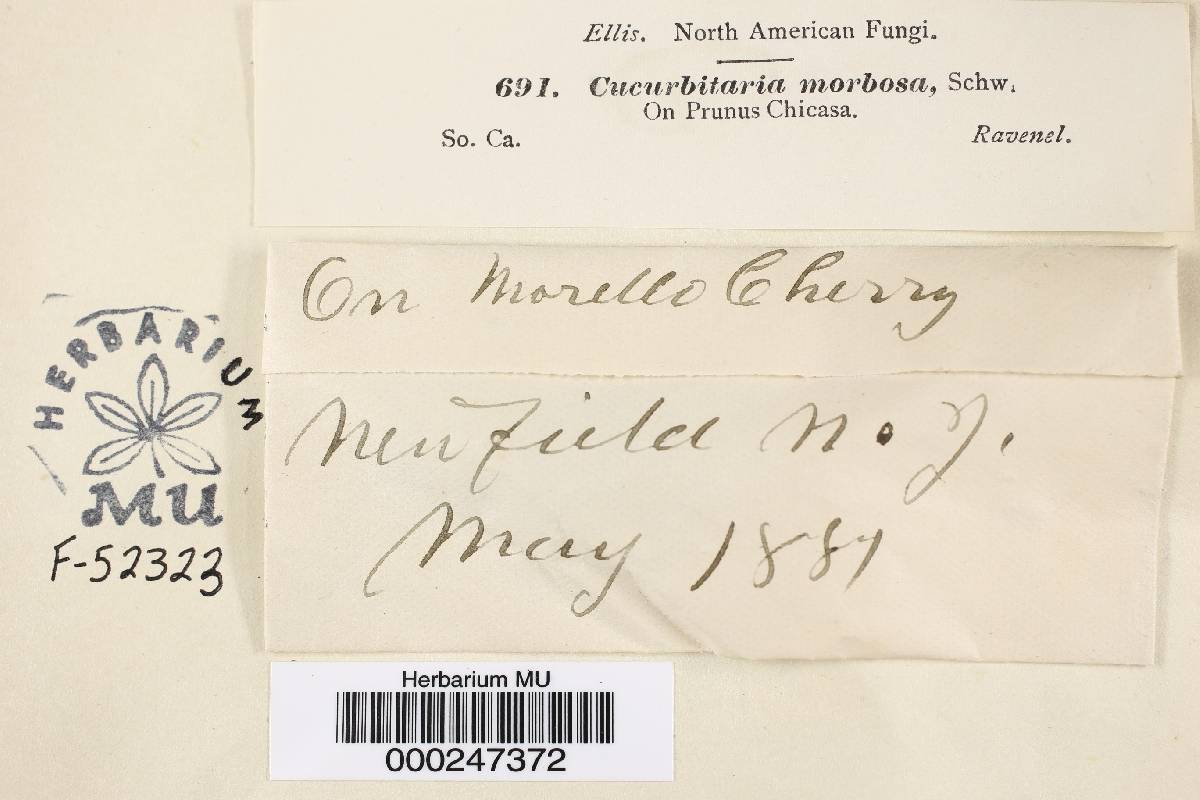 Ellis. North American Fungi.
691. Cucurbitaria morbosa, Schw.
On Prunus Chicasa.
So. Ca. Ravenel.
On Morello Cherry
Newfield N. J.
May 1881
HERBARIUM
MU
F-52323
Herbarium MU
000247372